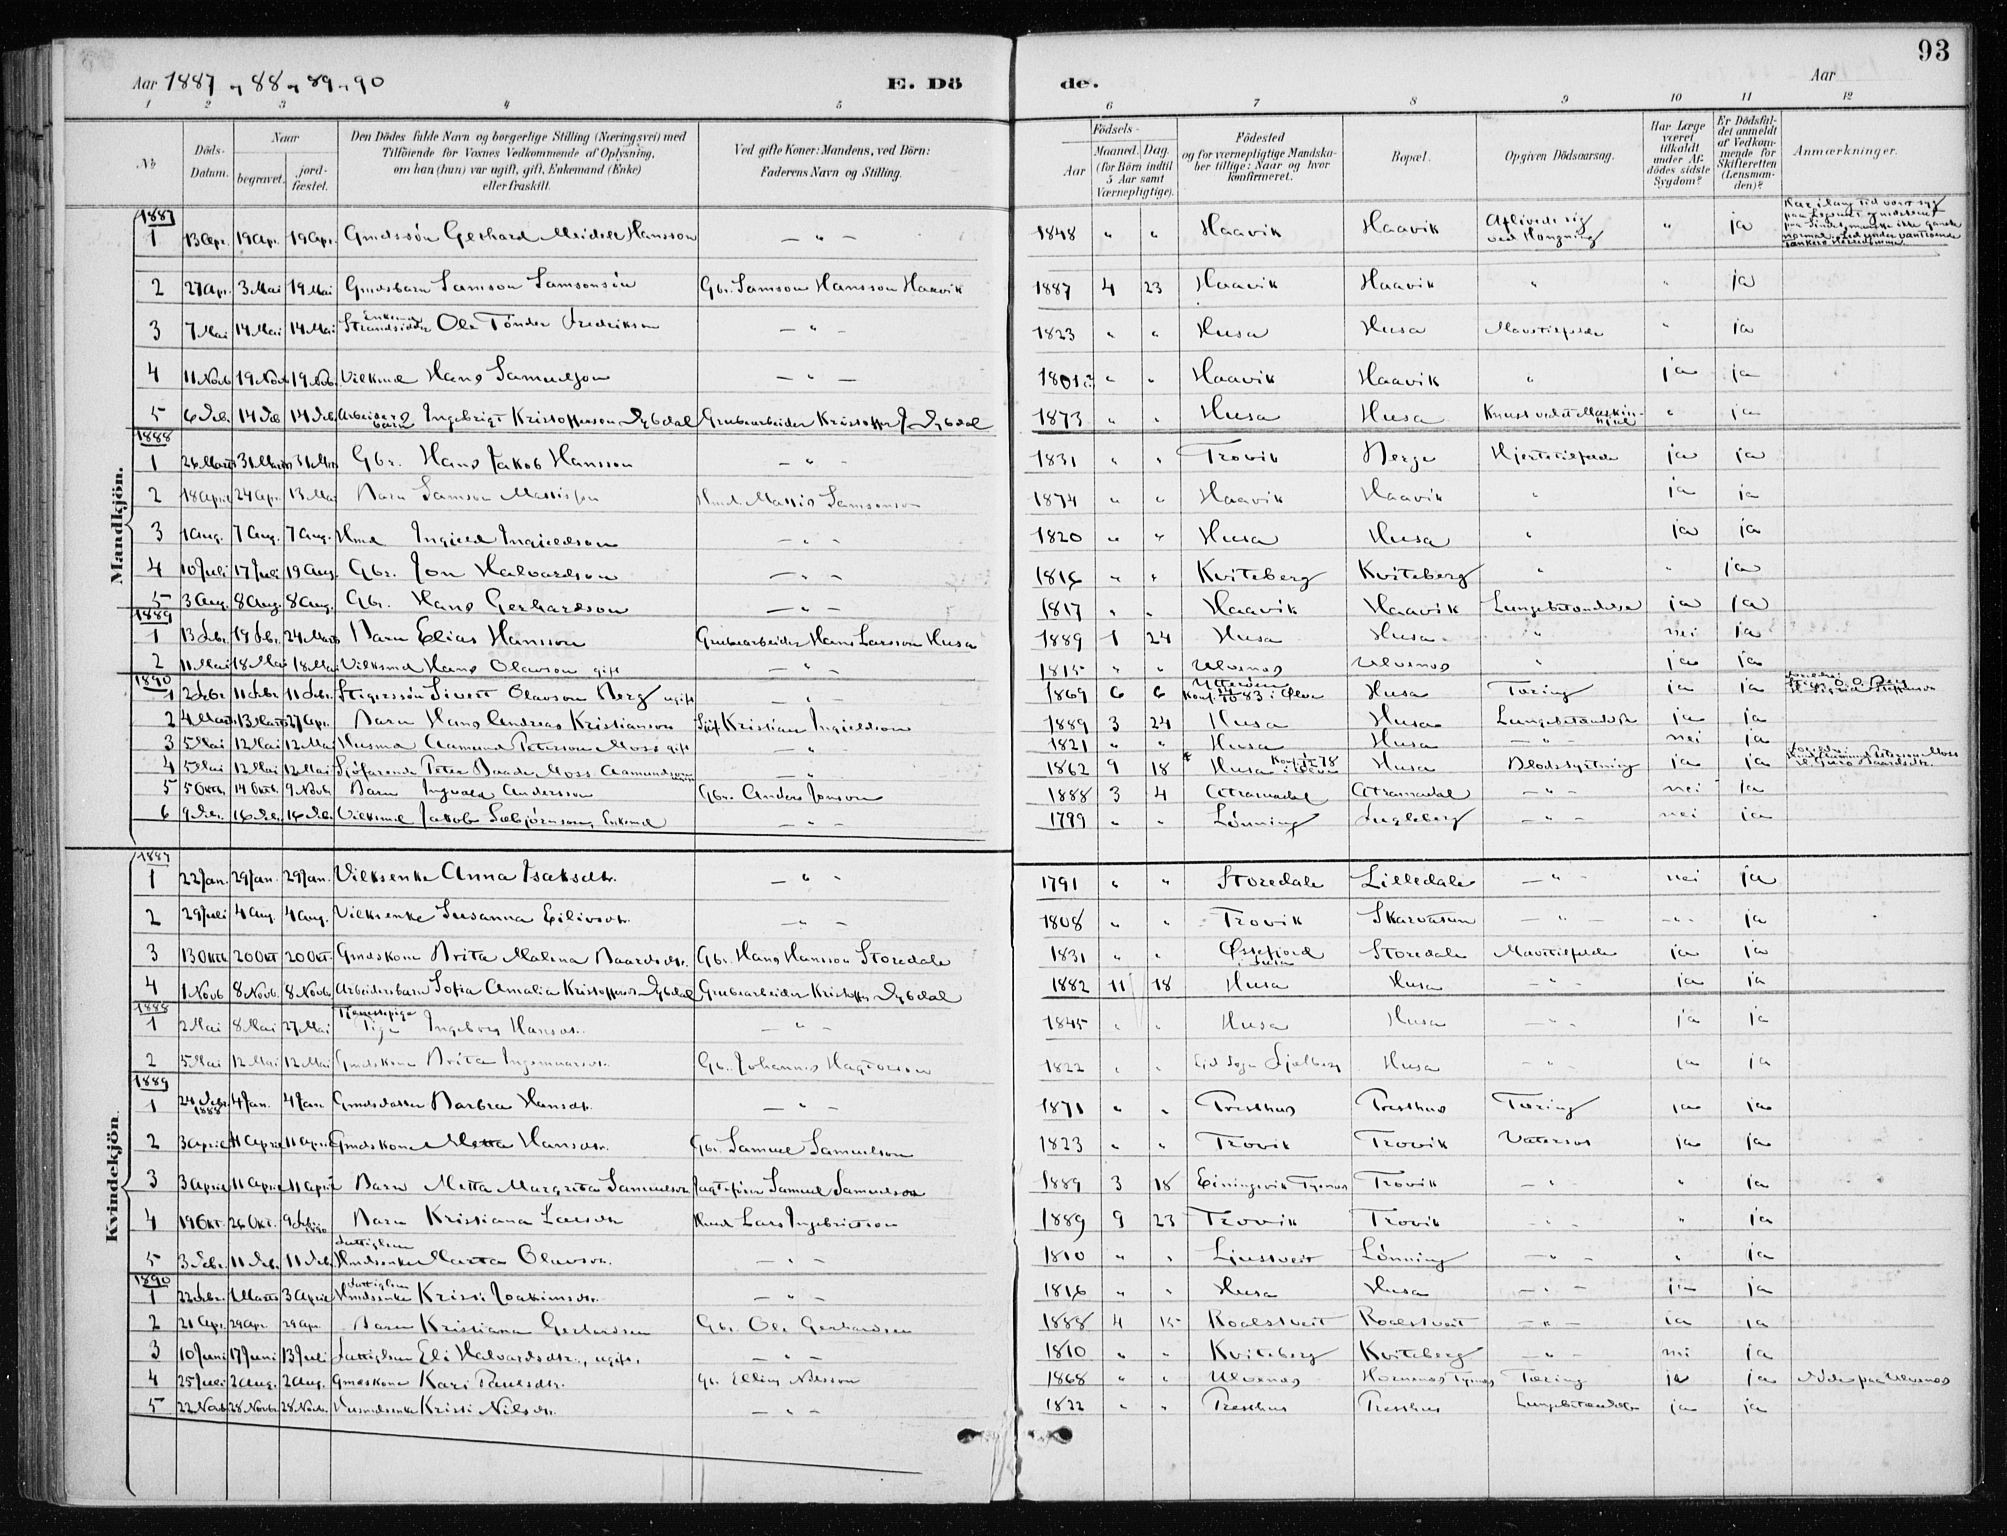 93
Aar 1887 og 88 og 89 og 90 E. Dö de. Aar
1 2 3 4 5 6 7 8 9 10 11 12
No Döds-Datum. Naar begravet. jordfæstet. Den Dödes fulde Navn og borgerlige Stilling (Næringsvei) med Tilföiende for Voxnes Vedkommende af Oplysning, om han (hun) var ugift, gift, Enkemand (Enke) eller fraskilt. Ved gifte Koner: Mandens, ved Börn: Faderens Navn og Stilling. Födsels- Aar Maaned. Dag. (for Börn indtil 5 Aar samt Værnepligtige). Födested og for værnepligtige Mandskaber tillige: Naar og hvor konfirmeret. Bopæl. Opgiven Dödsaarsag. Har Læge været tilkaldt under Afdödes sidste Sygdom? Er Dödsfaldet anmeldt af Vedkommende for Skifteretten (Lensmanden)? Anmærkninger.
Mandkjön.
1887
1 13 Apr. 19 Apr. 19 Apr. Gmdssön Gerhard Meidell Hansson — " — 1848 " " Haavik Haavik Aflivede sig ved Hængning " ja
2 27 Apr. 3 Mai 19 Mai Gmdsbarn Samson Samsonsön Gbr. Samson Hansson Haavik 1887 4 23 Haavik Haavik " " ja
3 7 Mai 14 Mai 14 Mai Enkemd Strandsidder Ole Tönder Fredrikson — " — 1823 " " Husa Husa Mavetilfelde " ja
4 11 Novb 19 Novb 19 Nob. Vilkmd Hans Samuelson — " — 1801 " " Haavik Haavik " ja ja
5 6 Deb 14 Deb 14 Deb Arbeiderbarn Ingebrigt Kristoffersson Dybdal Grubearbeider Kristoffer J Dybdal 1873 " " Husa Husa Knust ved et Maskinhjul " ja
1888
1 24 Marts 31 Marts 31 Mrs Gbr. Hans Jakob Hansson — " — 1831 " " Trovik Berge Hjertetilfelde ja ja
2 18 April 24 Apr. 13 Mai Barn Samson Mattisson Hmd. Mattis Samsonson 1874 " " Haavik Haavik " ja ja
3 1 Aug. 7 Aug. 7 Aug. Hmd Ingield Ingieldson — " — 1820 " " Husa Husa " ja ja
4 10 Juli 17 Juli 19 Aug. Gbr. Jon Halvardson — " — 1816 " " Kviteberg Kviteberg " " ja
5 3 Aug. 8 Aug. 8 Aug. Gbr. Hans Gerhardson — " — 1817 " " Haavik Haavik Lungebetændelse ja ja
1889
1 13 Febr. 19 Febr. 24 Marts Barn Elias Hansson Grubearbeider Hans Larsson Husa 1889 1 24 Husa Husa " nei ja
2 11 Mai 18 Mai 18 Mai Vilksmd Hans Olavson gift — " — 1815 " " Ulvenes Ulvenes " ja ja
1890
1 2 Febr. 11 Febr. 11 Febr. Stigerssön Sivert Olavson Berg ugift " 1869 6 6 Konf. 83 i Ølve Husa Tæring ja ja
2 4 Marts 13 Marts 27 Apr. Barn Hans Andreas Kristianson Sjöf. Kristian Ingieldson 1889 3 24 Husa Husa Lungebetændelse ja ja
3 5 Mai 12 Mai 12 Mai Husmd Aamund Peterson Moss gift — " — 1821 " " Husa Husa — " — nei ja
4 5 Mai 12 Mai 12 Mai Sjöfarende Peter Baade Moss Aamundson — " — 1862 9 18 Husa Konf. 78 i Ølve Husa Blodspytning ja ja
5 5 Oktb. 14 Oktb. 9 Novb. Barn Ingvald Andersson Gbr. Anders Jonson 1888 3 4 Atramadal Atramadal — " — nei ja
6 9 Deb. 16 Deb. 16 Deb. Vilksmd Jakob Sebjörnson, Enkemd — " — 1799 " " Lönning Fugleberg — " — nei ja
Kvindekjön.
1887
1 22 Jan. 29 Jan. 29 Jan. Vilksenke Anna Isaksdtr. — " — 1791 " " Storedale Lilledale — " — nei ja
2 29 Juli 4 Aug. 4 Aug. Vilksenke Susanna Eilivsdtr. — " — 1808 " " Trovik Skarvatun — " — — " — ja
3 13 Oktb. 20 Okt 20 Okt. Gmdskone Brita Malena Baardsdtr. Gbr. Hans Hansson Storedale 1831 " " Østefjord Storedale Mavetilfelde ja ja
4 1 Novb 8 Novb. 8 Novb. Arbeidersbarn Sofia Amalia Kristoffersd. Dybdal Grubearbeider Kristoffer Dybdal 1882 11 18 Husa Husa — " — ja ja
1888
1 2 Mai 8 Mai 27 Mai Tjenestepige Pige Ingeborg Hansdtr. — " — 1845 " " Husa Husa — " — ja ja
2 5 Mai 12 Mai 12 Mai Gmdskone Brita Ingemunsdtr. Gbr. Johannes Hagtorson 1822 " " Husa — " — ja ja
1889
1 24 Debr. 1888 4 Jan. 4 Jan Gmdsdatter Barbra Hansdtr. — " — 1871 " " Presthus Presthus Tæring ja ja
2 3 April 11 April 11 April Gmdskone Metta Hansdtr. Gbr. Samuel Samuelson 1823 " " Trovik Trovik Vatersot ja ja
3 3 April 11 April 11 April Barn Metta Margreta Samuelsdtr. Jagtefører Samuel Samuelson 1889 3 18 Eeiningevik Tysnes Trovik — " — " ja
4 19 Okt. 26 Okt. 9 Febr. 1890 Barn Kristiana Larsdtr Hmd Lars Ingebritsson 1889 9 23 Trovik Trovik — " — " ja
5 3 Debr. 11 Debr. 11 Deb Fattiglem Hmdsenke Marta Olavsdtr. — " — 1810 " " Ljustveit Lönning — " — " ja
1890
1 22 Febr. 1 Marts 3 April Fattiglem Hmdsenke Kristi Joakimsdtr. — " — 1816 " " Husa Husa — " — ja ja
2 21 Apr. 29 Apr. 29 Apr. Barn Kristiana Gerhardsen Gbr. Ole Gerhardsen 1888 4 15 Roaldstveit Roaldstveit — " — ja ja
3 10 Juni 17 Juni 13 Juli Fattiglem Eli Halvardsdtr., ugift. — " — 1810 " " Kviteberg Kviteberg — " — nei ja
4 25 Juli 2 Aug. 2 Aug. Gmdskone Kari Paulsdtr. Gbr. Elling Nilsson 1868 " " Ulvenes Hornenes Tysnes Tæring ja ja Döde paa Ulvenes
5 22 Novb 28 Novb. 28 Novb. Husmdsenke Kristi Nilsdtr. — " — 1822 " " Presthus Presthus Lungebetændelse ja ja